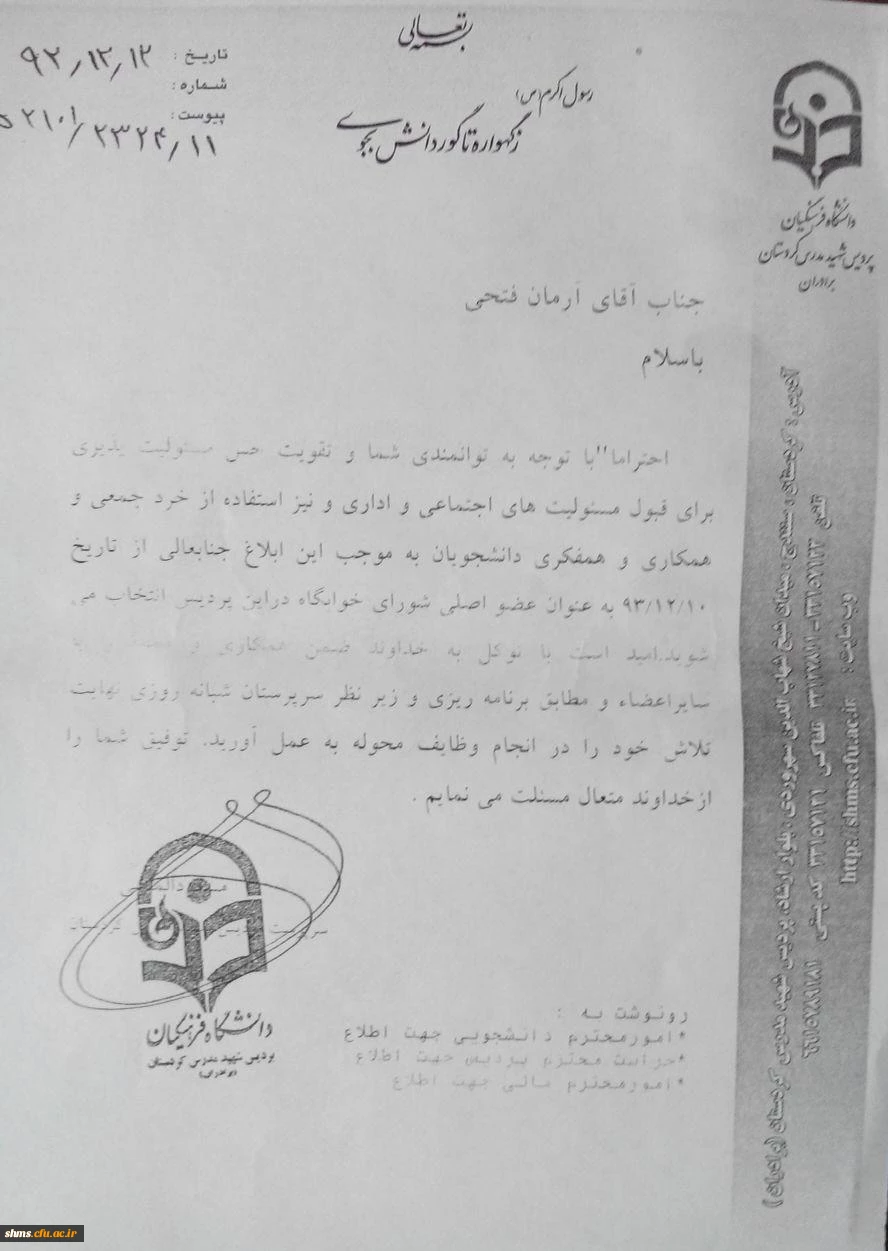 بسمه تعالی
رسول اکرم (س)
زگهواره تا گور دانش بجوی
تاریخ : ۹۲/۱۲/۱۲
شماره :
پیوست :
۵۲۱۰۱/۲۳۲۴/۱۱
دانشگاه فرهنگیان
پردیس شهید مدرس کردستان
برادران
جناب آقای آرمان فتحی
باسلام
احتراما" با توجه به توانمندی شما و تقویت حس مسئولیت پذیری
برای قبول مسئولیت های اجتماعی و اداری و نیز استفاده از خرد جمعی و
همکاری و همفکری دانشجویان به موجب این ابلاغ جنابعالی از تاریخ
۹۳/۱۲/۱۰ به عنوان عضو اصلی شورای خوابگاه دراین پردیس انتخاب می
شوید.امید است با توکل به خداوند ضمن همکاری و
سایراعضاء و مطابق برنامه ریزی و زیر نظر سرپرستان شبانه روزی نهایت
تلاش خود را در انجام وظایف محوله به عمل آورید. توفیق شما را
ازخداوند متعال مسئلت می نمایم .
کردستان
دانشگاه فرهنگیان
پردیس شهید مدرس کردستان
(برادران)
رونوشت به :
*امورمحترم دانشجویی جهت اطلاع
*حراست محترم پردیس جهت اطلاع
*امورمحترم مالی جهت اطلاع
آدرس: کردستان، سنندج، میدان شیخ شهاب الدین سهروردی، بلوار ارشاد، پردیس شهید مدرس کردستان (برادران)
تلفن
فاکس
کد پستی
وب سایت: http://shms.cfu.ac.ir
shms.cfu.ac.ir